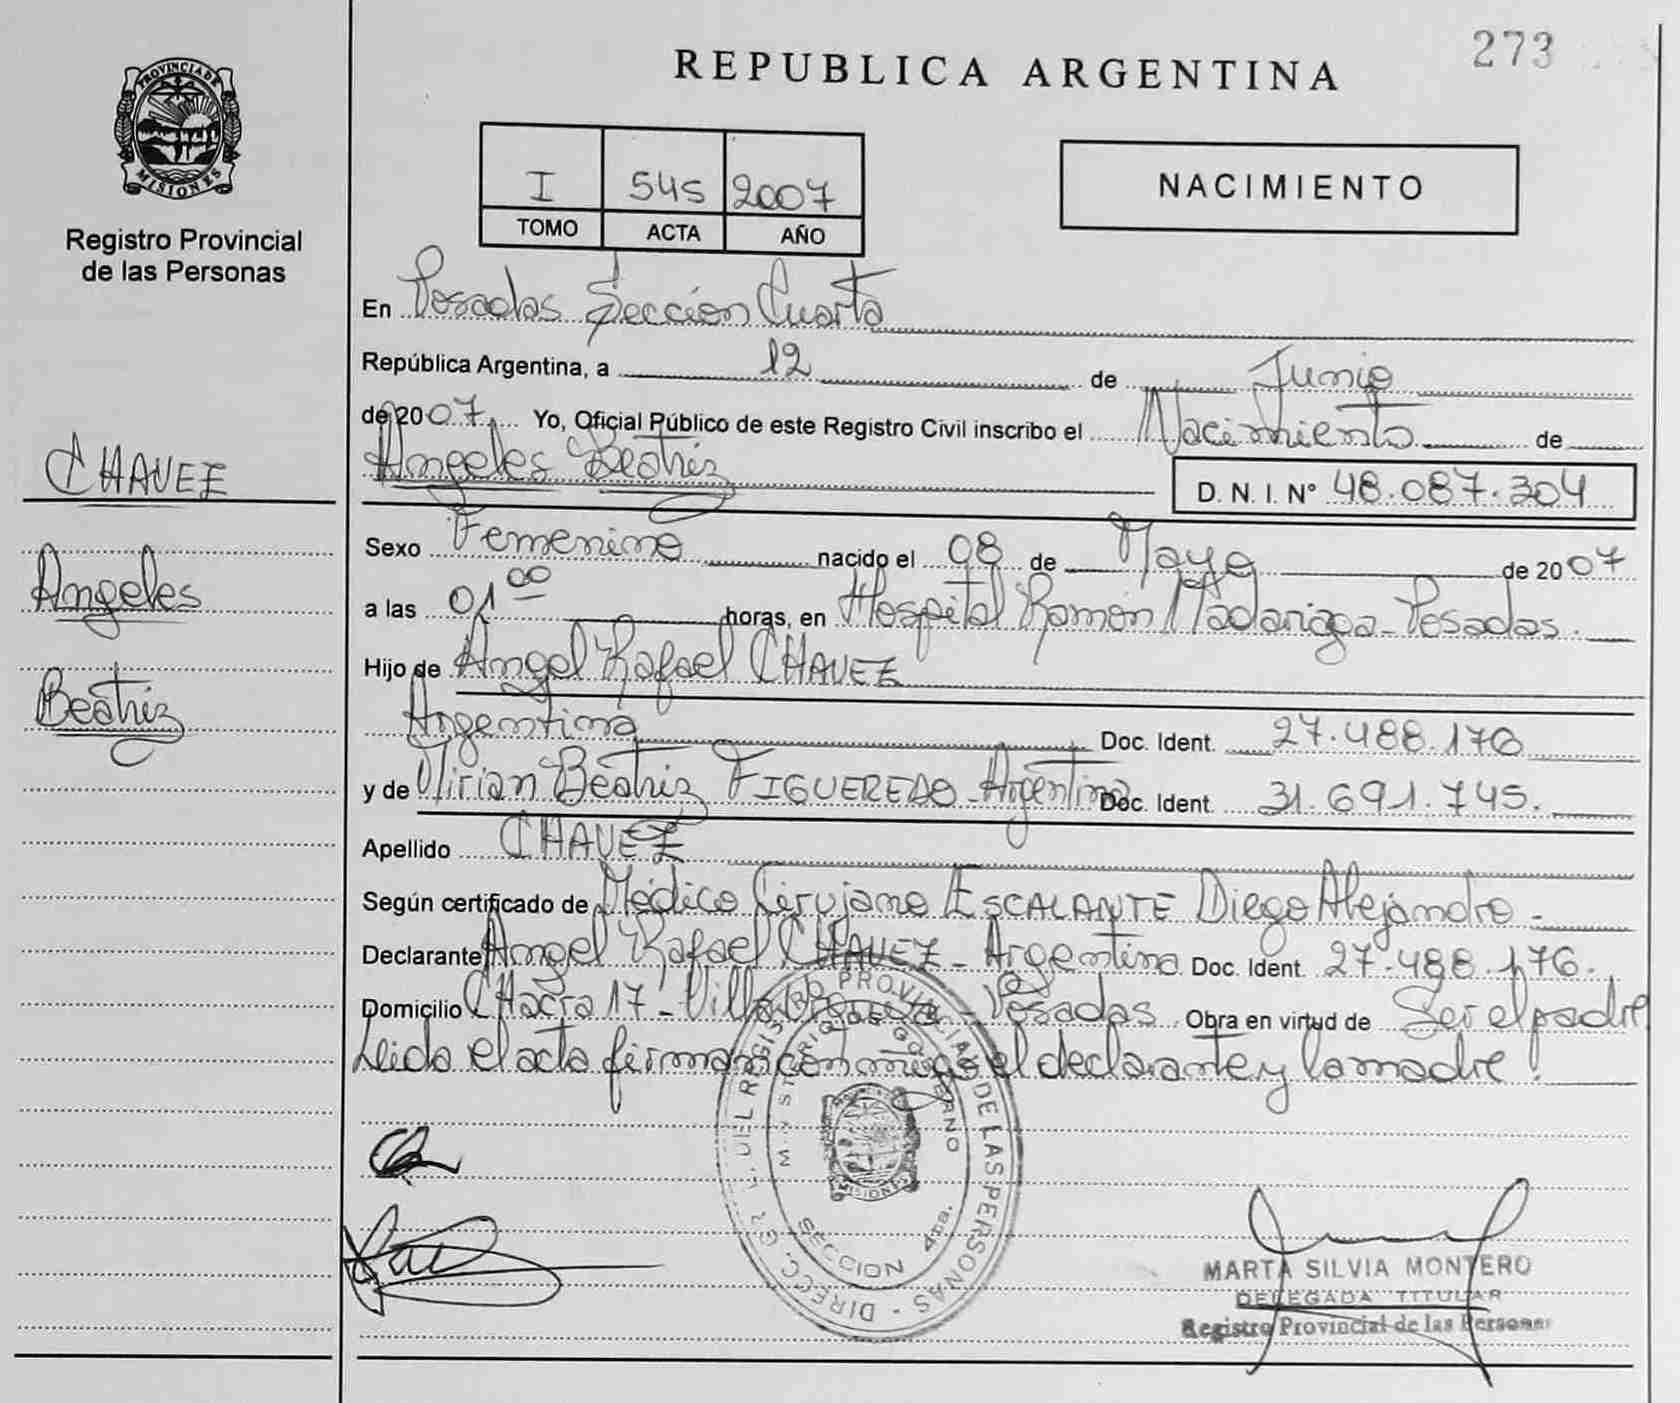 273
REPUBLICA ARGENTINA
PROVINCIA DE
MISIONES
Registro Provincial
de las Personas
I 545 2007
TOMO ACTA AÑO
NACIMIENTO
En Posadas Sección Cuarta
República Argentina, a 12 de Junio
de 2007. Yo, Oficial Público de este Registro Civil inscribo el Nacimiento de
CHAVEZ
Angeles
Beatriz
Angeles Beatriz D. N. I. N° 48.087.304
Sexo Femenino nacido el 08 de Mayo de 2007
a las 01 00 horas, en Hospital Ramón Madariaga - Posadas.
Hijo de Angel Rafael CHAVEZ
Argentina Doc. Ident. 27.488.176
y de Mirian Beatriz FIGUEREDO - Argentina Doc. Ident. 31.691.745.
Apellido CHAVEZ
Según certificado de Médico Cirujano ESCALANTE Diego Alejandro -
Declarante Angel Rafael CHAVEZ - Argentina Doc. Ident. 27.488.176.
Domicilio CHacra 17 - Villa - Posadas. Obra en virtud de Ser el padre
Leida el acta firman conmigo el declarante y la madre!
PROVINCIAL DE LAS PERSONAS - DIRECC. GRL. DEL REGIST
GOBIERNO
MISIONES
SECCION 4ta.
MARTA SILVIA MONTERO
DELEGADA TITULAR
Registro Provincial de las Personas